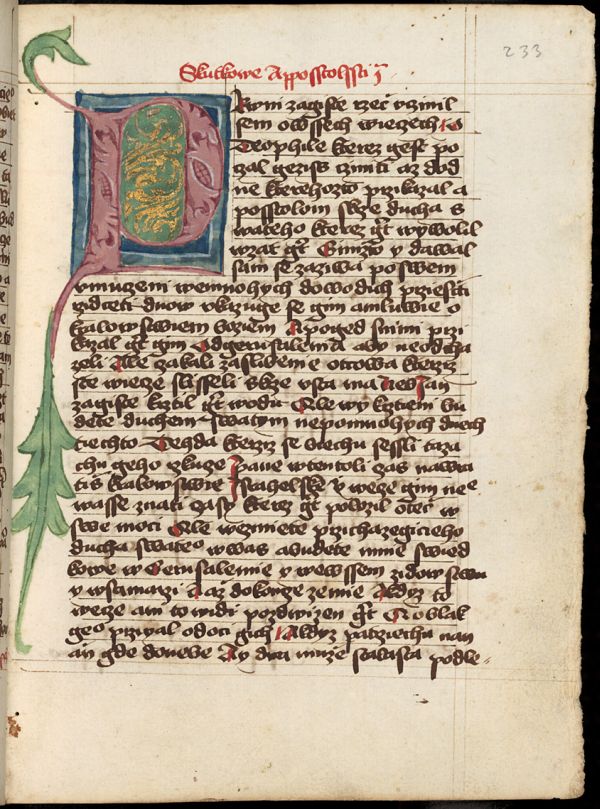 233
Skutkowe Apposstolssti j
Prwni zagiste rzec vczinil
sem o wssech wieczech o
Teophile kterez gest po
czal gezis cziniti az do d
ne kterehozto przikazal a
posstolom skrze ducha s
wateho kterez gt wywolil
wzat gt Gimzto y dawal
sam se za ziwa po swem
vmuczeni w mnohych dowodich przies cti
rzidceti dnow vkazuge se gim a mluwie o
kralowstwiem bozem A poged s nimi przi
kazal gt gim Od gerusalema aby neodcha
zeli Ale czakali zaslibenie otcowa kterez
ste wiecze slisseli skrze vsta ma Neb Jan
zagiste krztil gt wodu Ale wy krztieni bu
dete duchem swatym ne po mnohych dnech
tiechto Tehda kterziz se biechu sessli taza
chu geho rzkuze Pane w tento li czas nawra
tiss kralowstwie Israhelske y wece gim nenie
wasse znati czasy kterez gt polozil otec w
swe moci Ale wezmete przichazegicieho
ducha swateho w was a budete mnie swied
kowe w Gerusalemie y we wssem zidowstwu
y w samarzi A az do koncze zemie A kdyz to
wece ani to widie pozdwizen gt A oblak
geho przigal od oczi gich A kdyz patrziechu nan
an gde do nebe Ay dwa muze stalasta podle